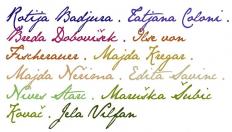 Rotija Badjura. Tatjana Coloni.
Breda Dobovišek. Ilse von
Fischerauer. Majda Kregar.
Majda Nerima. Edita Savinc.
Nives Starc. Maruška Šubic
Kovač. Jela Vilfan